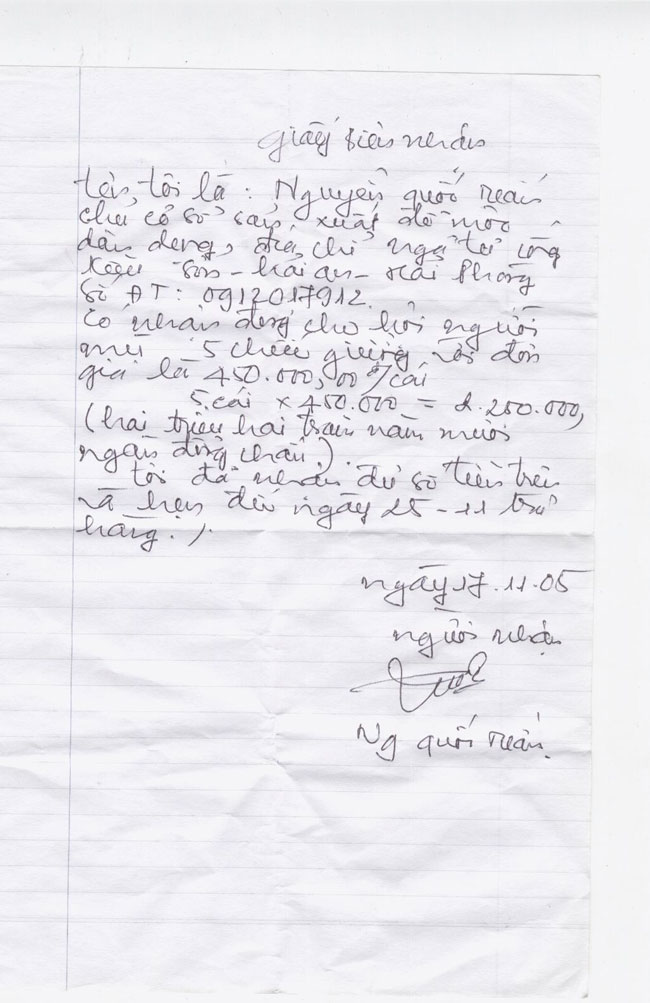 giấy biên nhận
tên tôi là : Nguyễn quốc
chủ cơ sở sản xuất đồ mộc
dân dụng, địa chỉ ngã tư
Kiều Sơn - hải an - Hải Phòng
số ĐT : 0912017912
có nhận đóng cho hội người
mù 5 chiếc giường với đơn
giá là 450.000,00đ/cái
5 cái × 450.000 = 2.250.000,
(hai triệu hai trăm năm mươi
ngàn đồng chẵn)
tôi đã nhận đủ số tiền trên
và hẹn đến ngày 25-11 trả
hàng ./.
ngày 17.11.05
người nhận
Ng quốc